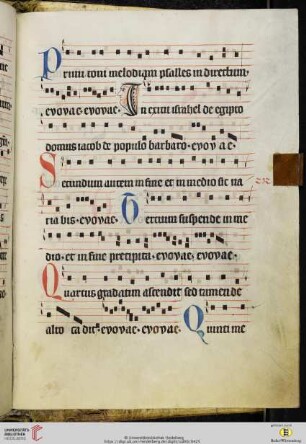 Primi toni melodiam psalles in directum.
evovae. evovae. In exitu israhel de egipto
domus iacob de populo barbaro. evovae.
Secundum autem in fine et in medio sic va
ria bis. evovae. Tertium suspende in me
dio. et in fine precipita. evovae. evovae.
Quartus gradatim ascendit sed tamen de
alto evovae. evovae. Quinti me
UNIVERSITÄTS-
BIBLIOTHEK
HEIDELBERG
© Universitätsbibliothek Heidelberg